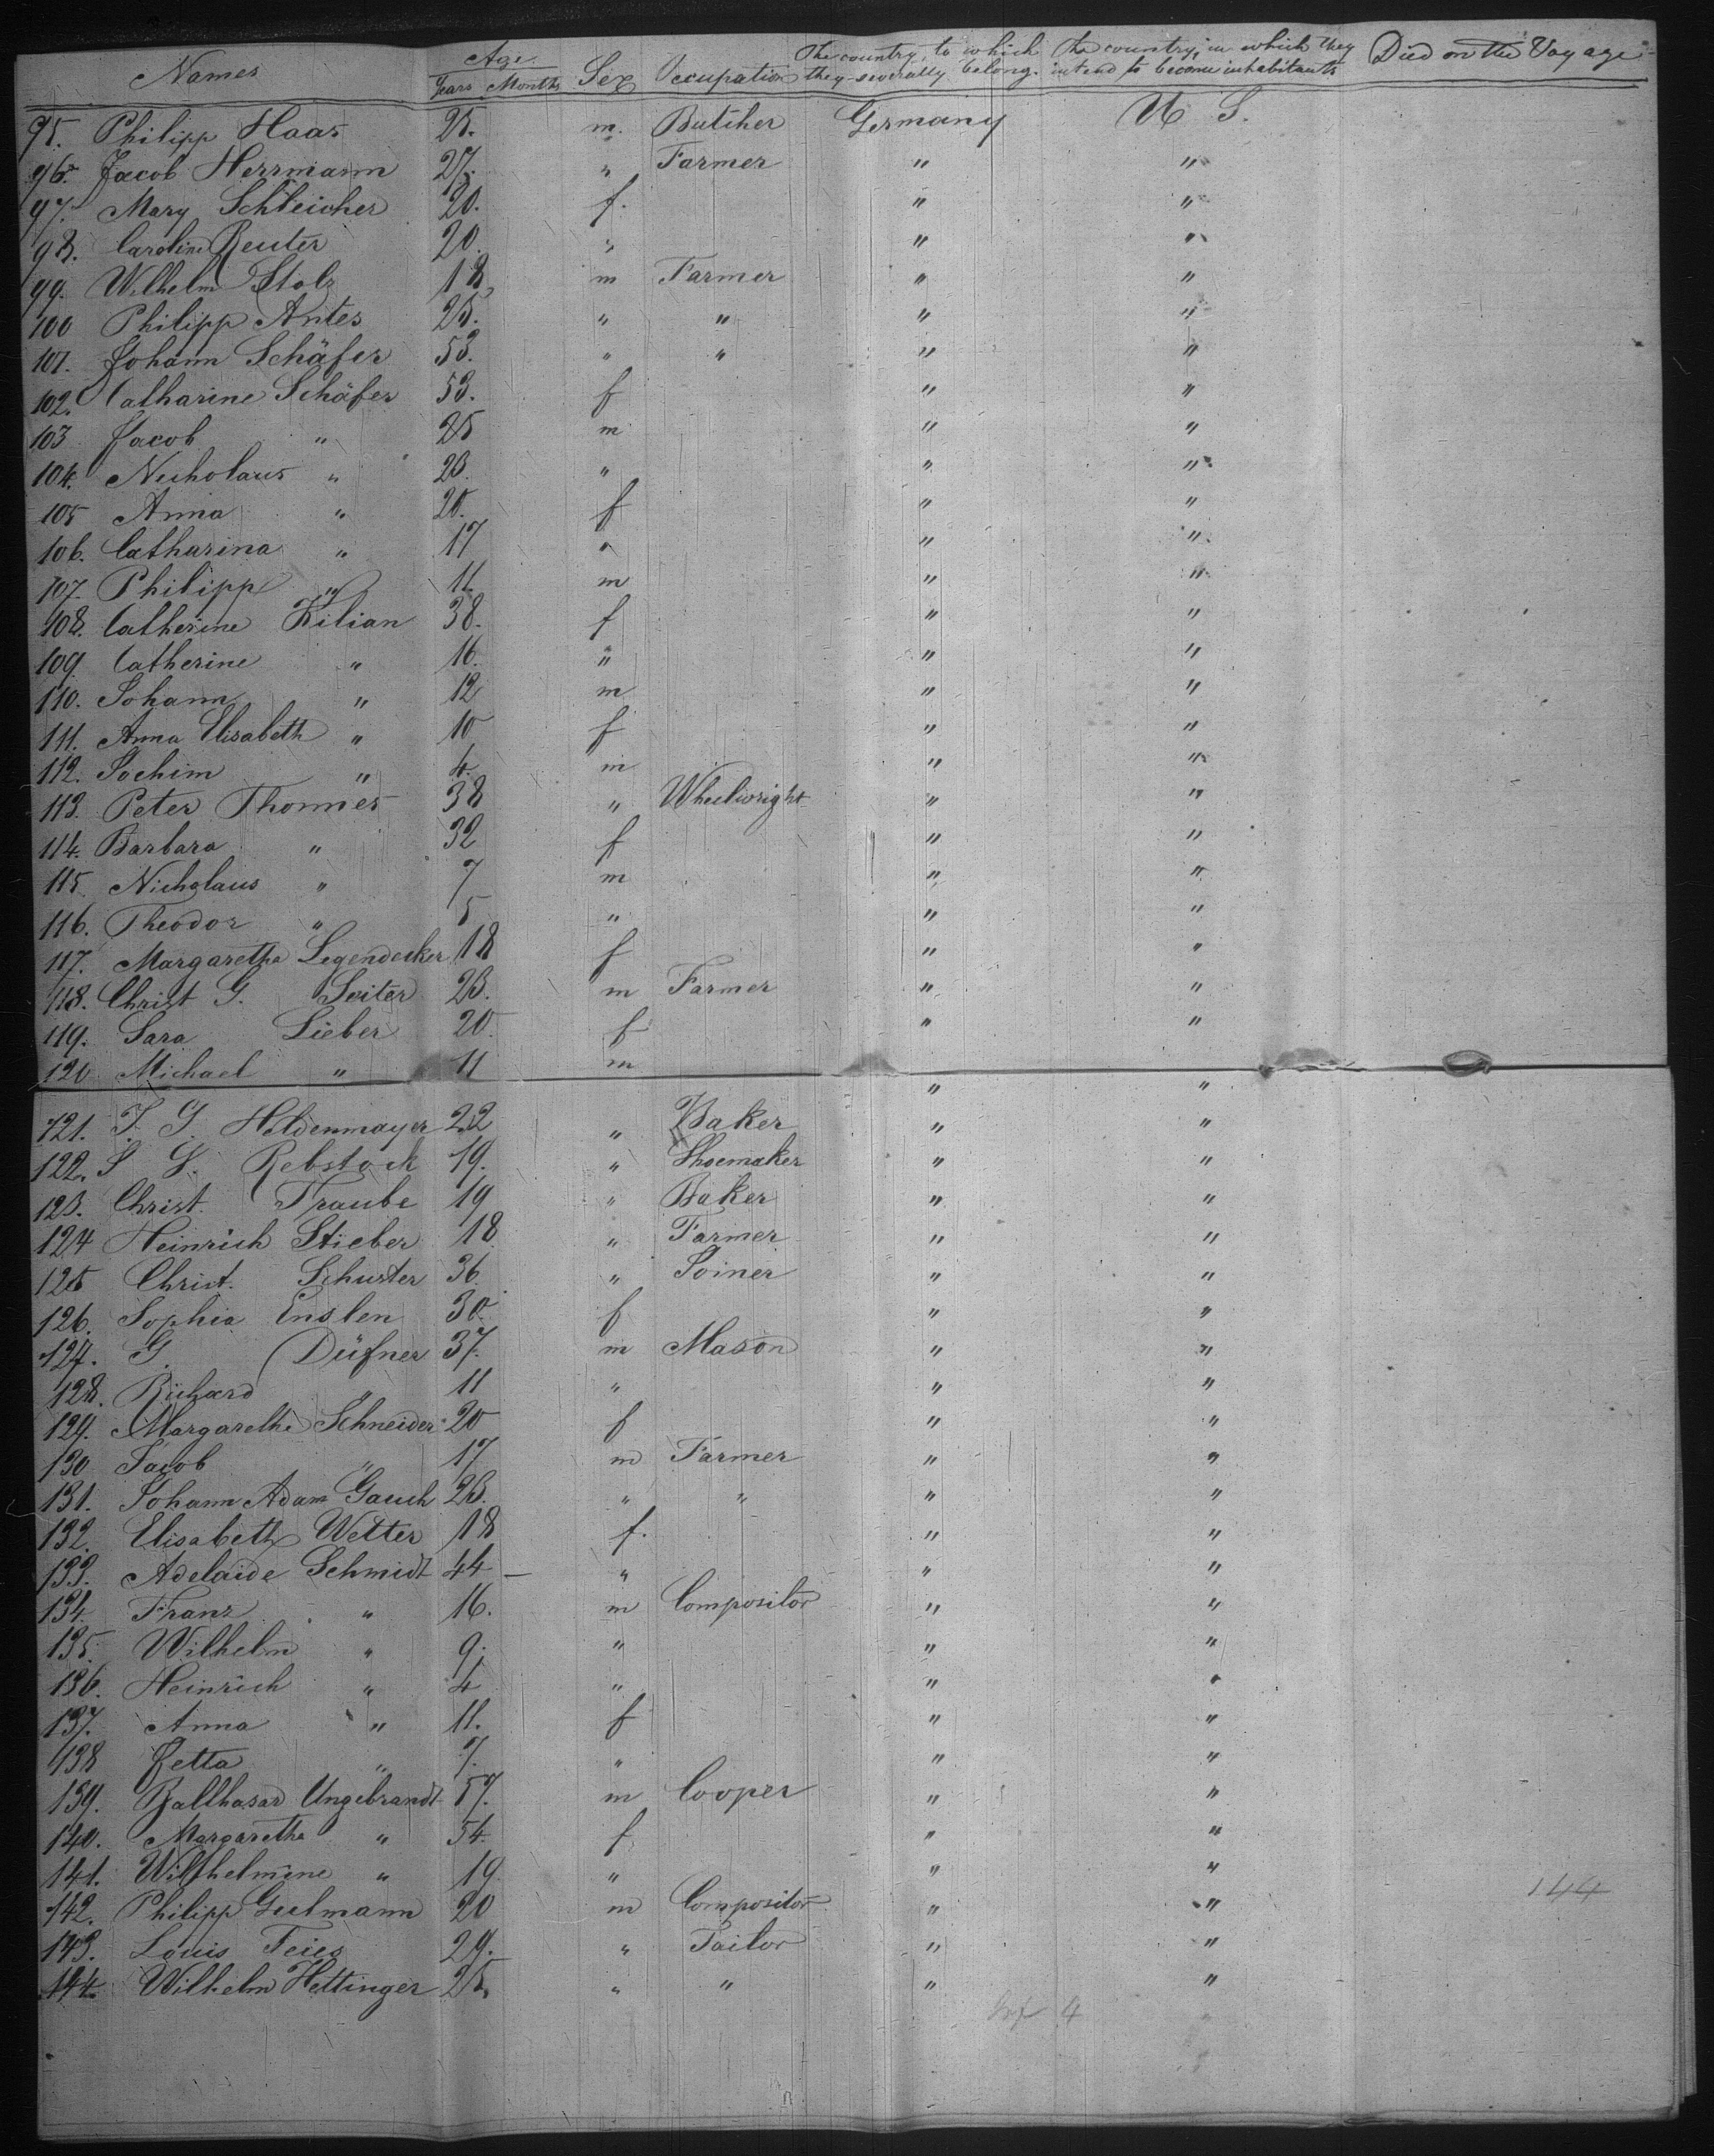 Names Age Sex Occupation The country to which they severally belong. The country, in which they intend to become inhabitants Died on the Voyage
Years Months
95. Philipp Haas 25. m. Butcher Germany U S.
96. Jacob Herrmann 27. " Farmer " "
97. Mary Schleicher 20. f. " "
98. Caroline Reuter 20. " " "
99. Wilhelm Stolz 18 m Farmer " "
100 Philipp Antes 25. " " " "
101. Johann Schäfer 53. " " " "
102. Catharine Schäfer 53. f " "
103 Jacob " 25 m " "
104. Nicholaus " 23. " " "
105 Anna " 20. f " "
106. Catharina " 17 " " "
107. Philipp " 11. m " "
108. Catherine Kilian 38. f " "
109. Catherine " 16. " " "
110. Johann " 12 m " "
111. Anna Elisabeth " 10 f " "
112. Jochim " 4. m " "
113. Peter Thommes 38 " Wheelwright " "
114. Barbara " 32 f " "
115. Nicholaus " 7 m " "
116. Theodor " 5 " " "
117. Margaretha Legendecker 18 f " "
118. Christ G. Seiter 23. m Farmer " "
119. Sara Lieber 20. f " "
120 Michael " 11 m " "
121. J. G. Heldenmayer 22 " Baker " "
122. J G. Rebstock 19. " Shoemaker " "
123. Christ. Traube 19 " Baker " "
124 Heinrich Stieber 18 " Farmer " "
125 Christ. Schuster 36. " Joiner " "
126. Sophia Enslen 30. f " "
127. G. Düfner 37. m Mason " "
128. Richard " 11 " " "
129. Margarethe Schneider 20 f " "
130 Jacob " 17 m Farmer " "
131. Johann Adam Gauch 23. " " " "
132. Elisabeth Wetter 18 f. " "
133. Adelaide Schmidt 44 — " " "
134. Franz " 16. m Compositor " "
135. Wilhelm " 9. " " "
136. Heinrich " 4 " " "
137. Anna " 11. f " "
138 Jetta " 7. " " "
139. Balthasar Ungebrandt 57. m Cooper " "
140. Margaretha " 54. f " "
141. Wilhelmine " 19 " " "
142. Philipp Gulmann 20 m Compositor " " 144
143. Louis Feies 29. " Tailor " "
144. Wilhelm Hettinger 25. " " " "
4